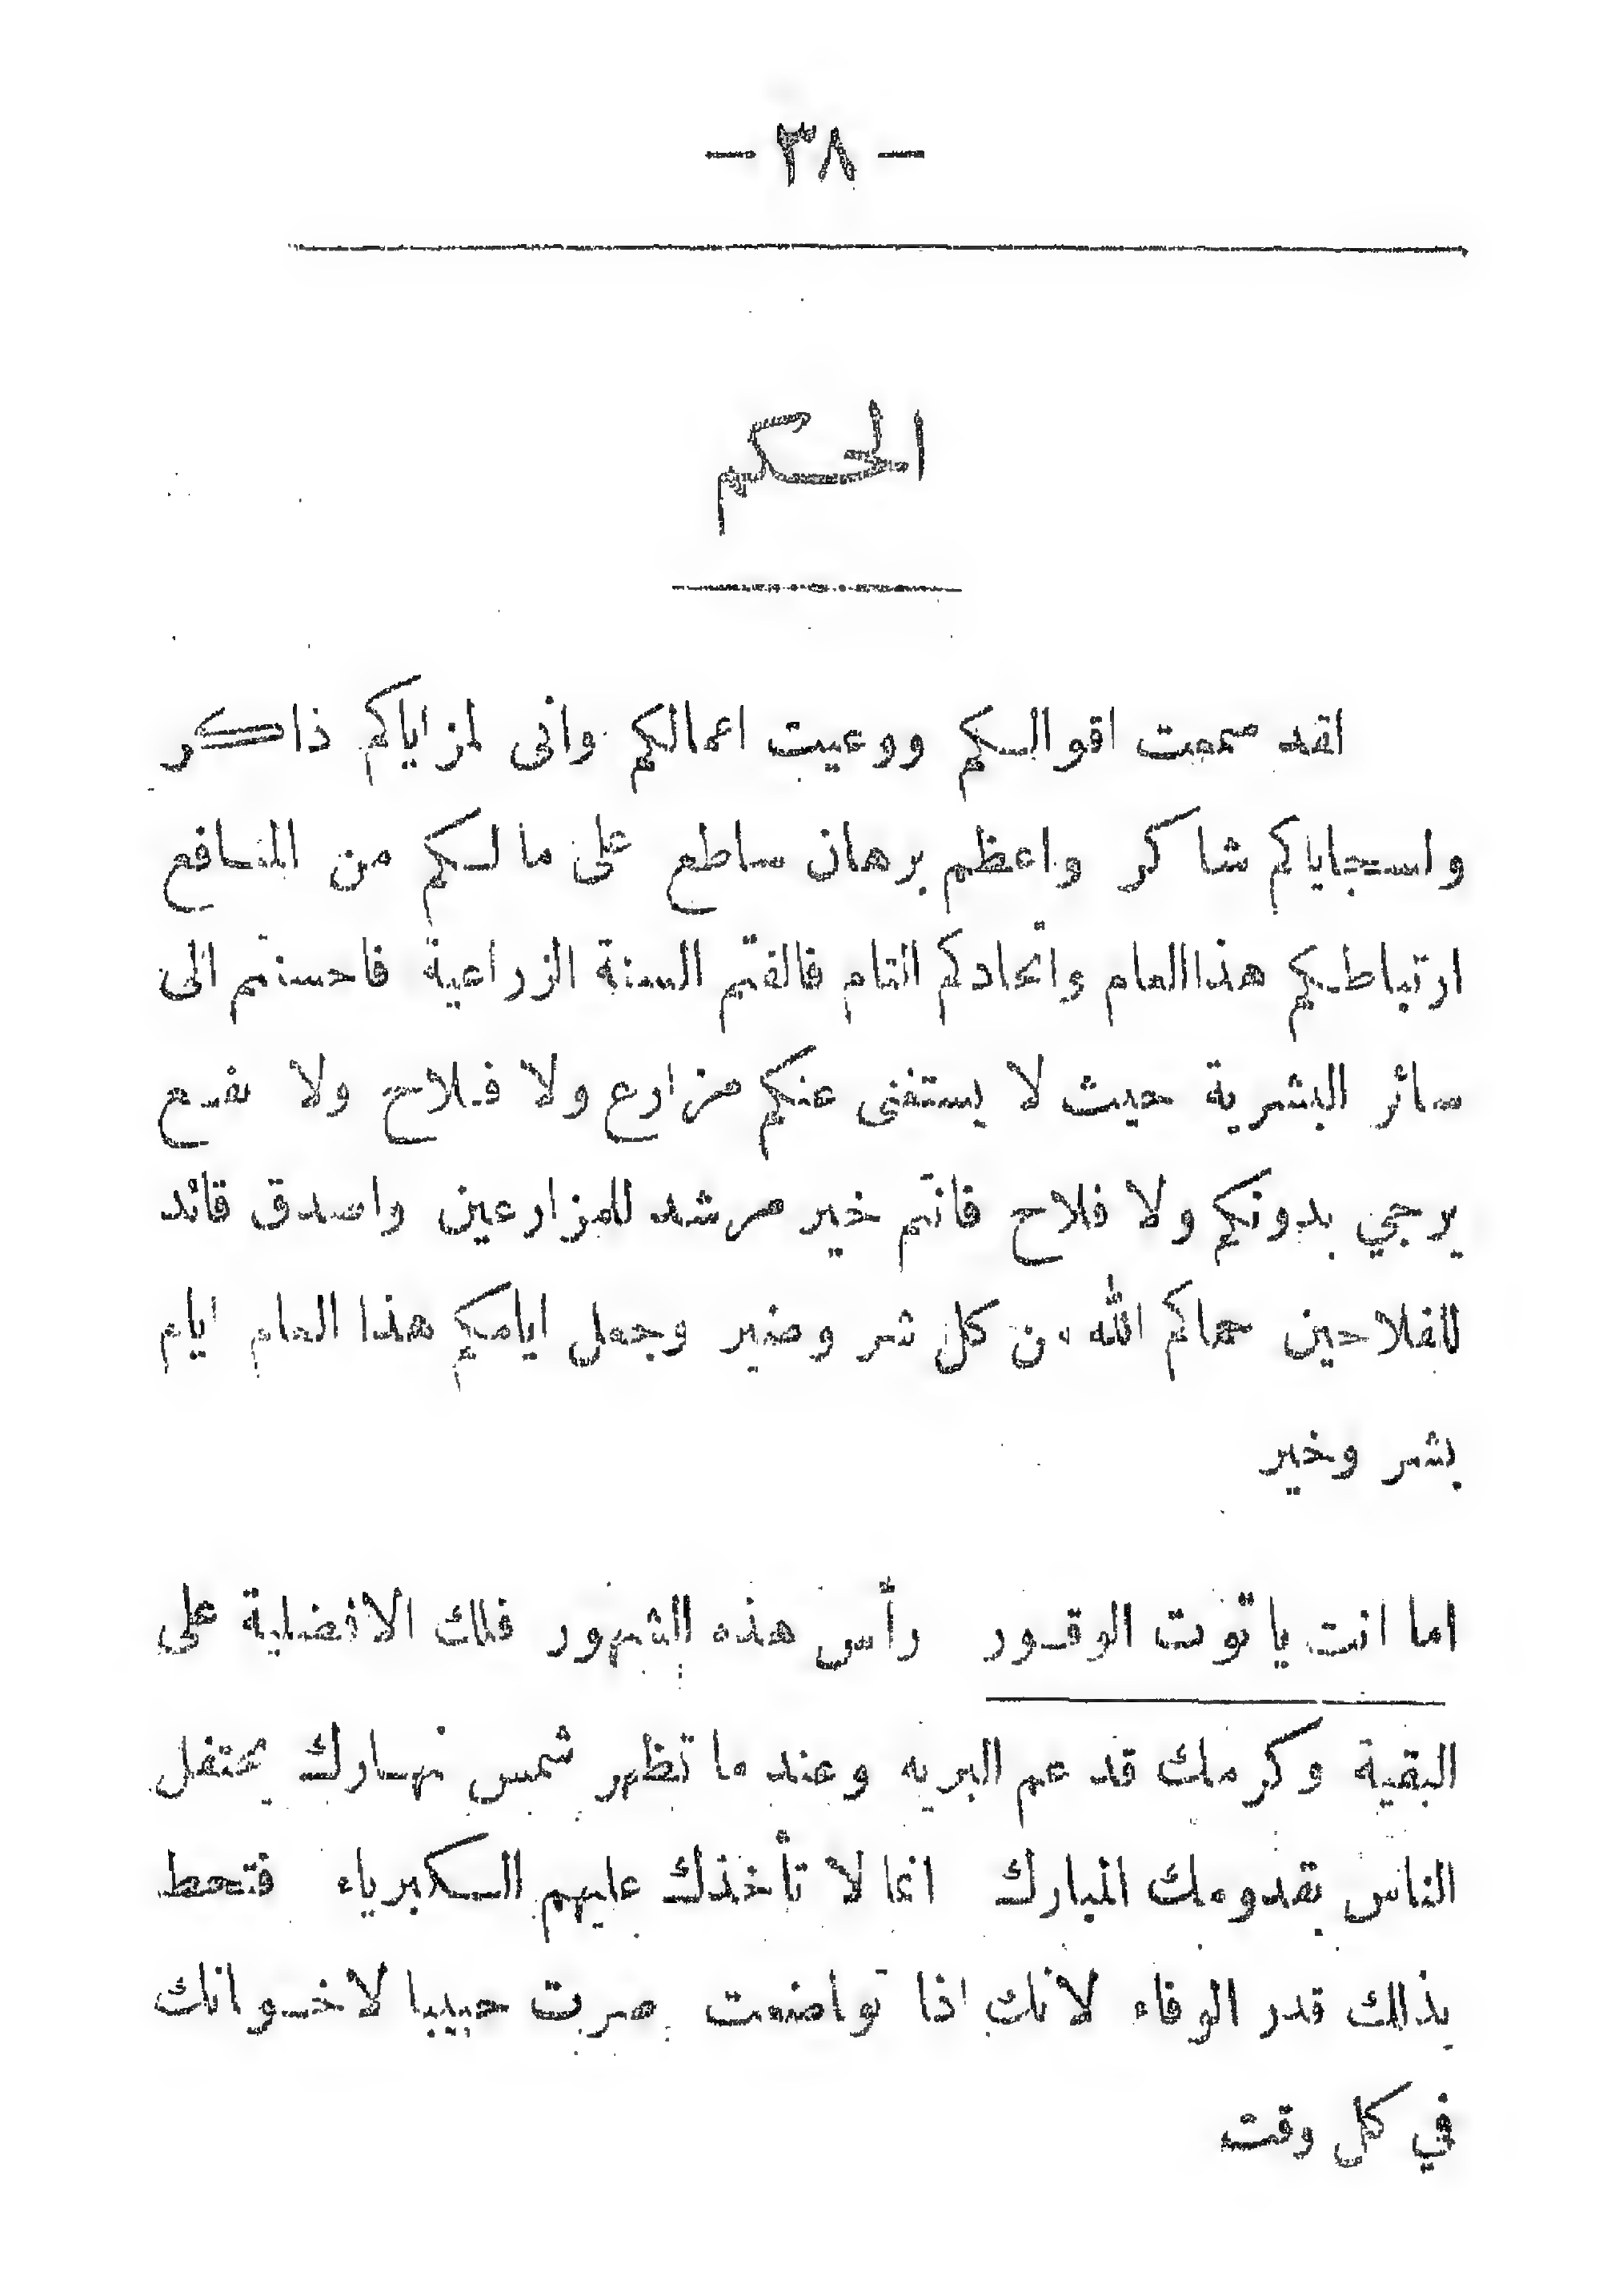 — ٣٨ —
الحكم
لقد سمعت اقوالكم ووعيت اعمالكم وانى لمزاياكم ذاكر
ولسجاياكم شاكر واعظم برهان ساطع على مالكم من المنافع
ارتباطكم هذا العام واتحادكم التام فالفتم السنة الزراعية فاحسنتم الى
سائر البشرية حيث لا يستغنى عنكم مزارع ولا فلاح ولا نفع
يرجي بدونكم ولا فلاح فانتم خير مرشد للمزارعين واصدق قائد
للفلاحين حماكم الله من كل شر وضير وجعل ايامكم هذا العام ايام
بشر وخير
اما انت يا توت الوقور رأس هذه الشهور فلك الافضلية على
البقية وكرمك قد عم البريه وعند ما تظهر شمس نهارك يحتفل
الناس بقدومك المبارك انما لا تأخذك عليهم الكبرياء فتحط
بذلك قدر الوفاء لانك اذا تواضعت صرت حبيبا لاخوانك
في كل وقت